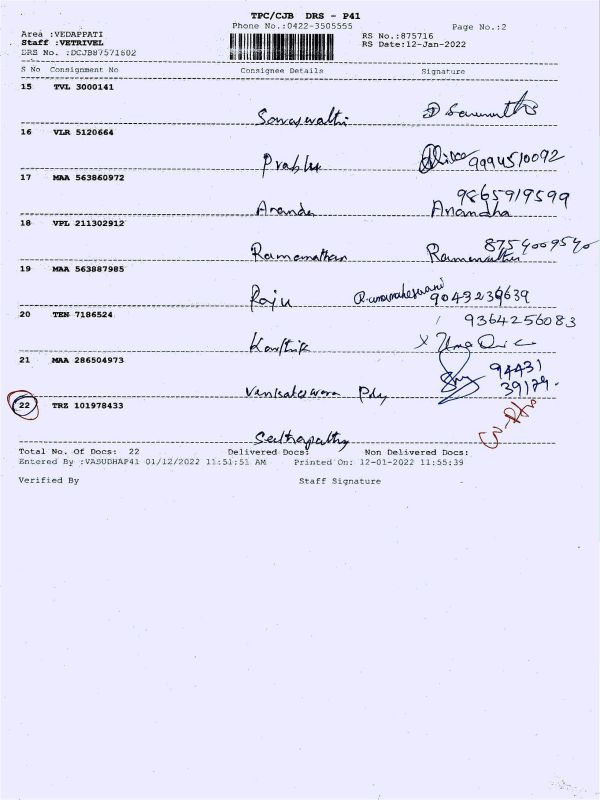 TPC/CJB DRS - P41
Phone No.:0422-3505555 Page No.:2
Area :VEDAPPATI RS No.:875716
Staff :VETRIVEL RS Date:12-Jan-2022
DRS No. :DCJB87571602
S No Consignment No Consignee Details Signature
15 TVL 3000141
Saraswathi
16 VLR 5120664
Prabhu 9994510092
17 MAA 563860972
9865919599
Ananda Anandha
18 VPL 211302912
8754009540
Ramanathan
19 MAA 563887985
Raju R.umamaheswari 9043239639
20 TEN 7186524
9364256083
Karthik
21 MAA 286504973
94431
39129
Venkateswara Pdy
22 TRZ 101978433
Seethapathy
Total No. Of Docs: 22 Delivered Docs: Non Delivered Docs:
Entered By :VASUDHAP41 01/12/2022 11:51:51 AM Printed On: 12-01-2022 11:55:39
Verified By Staff Signature